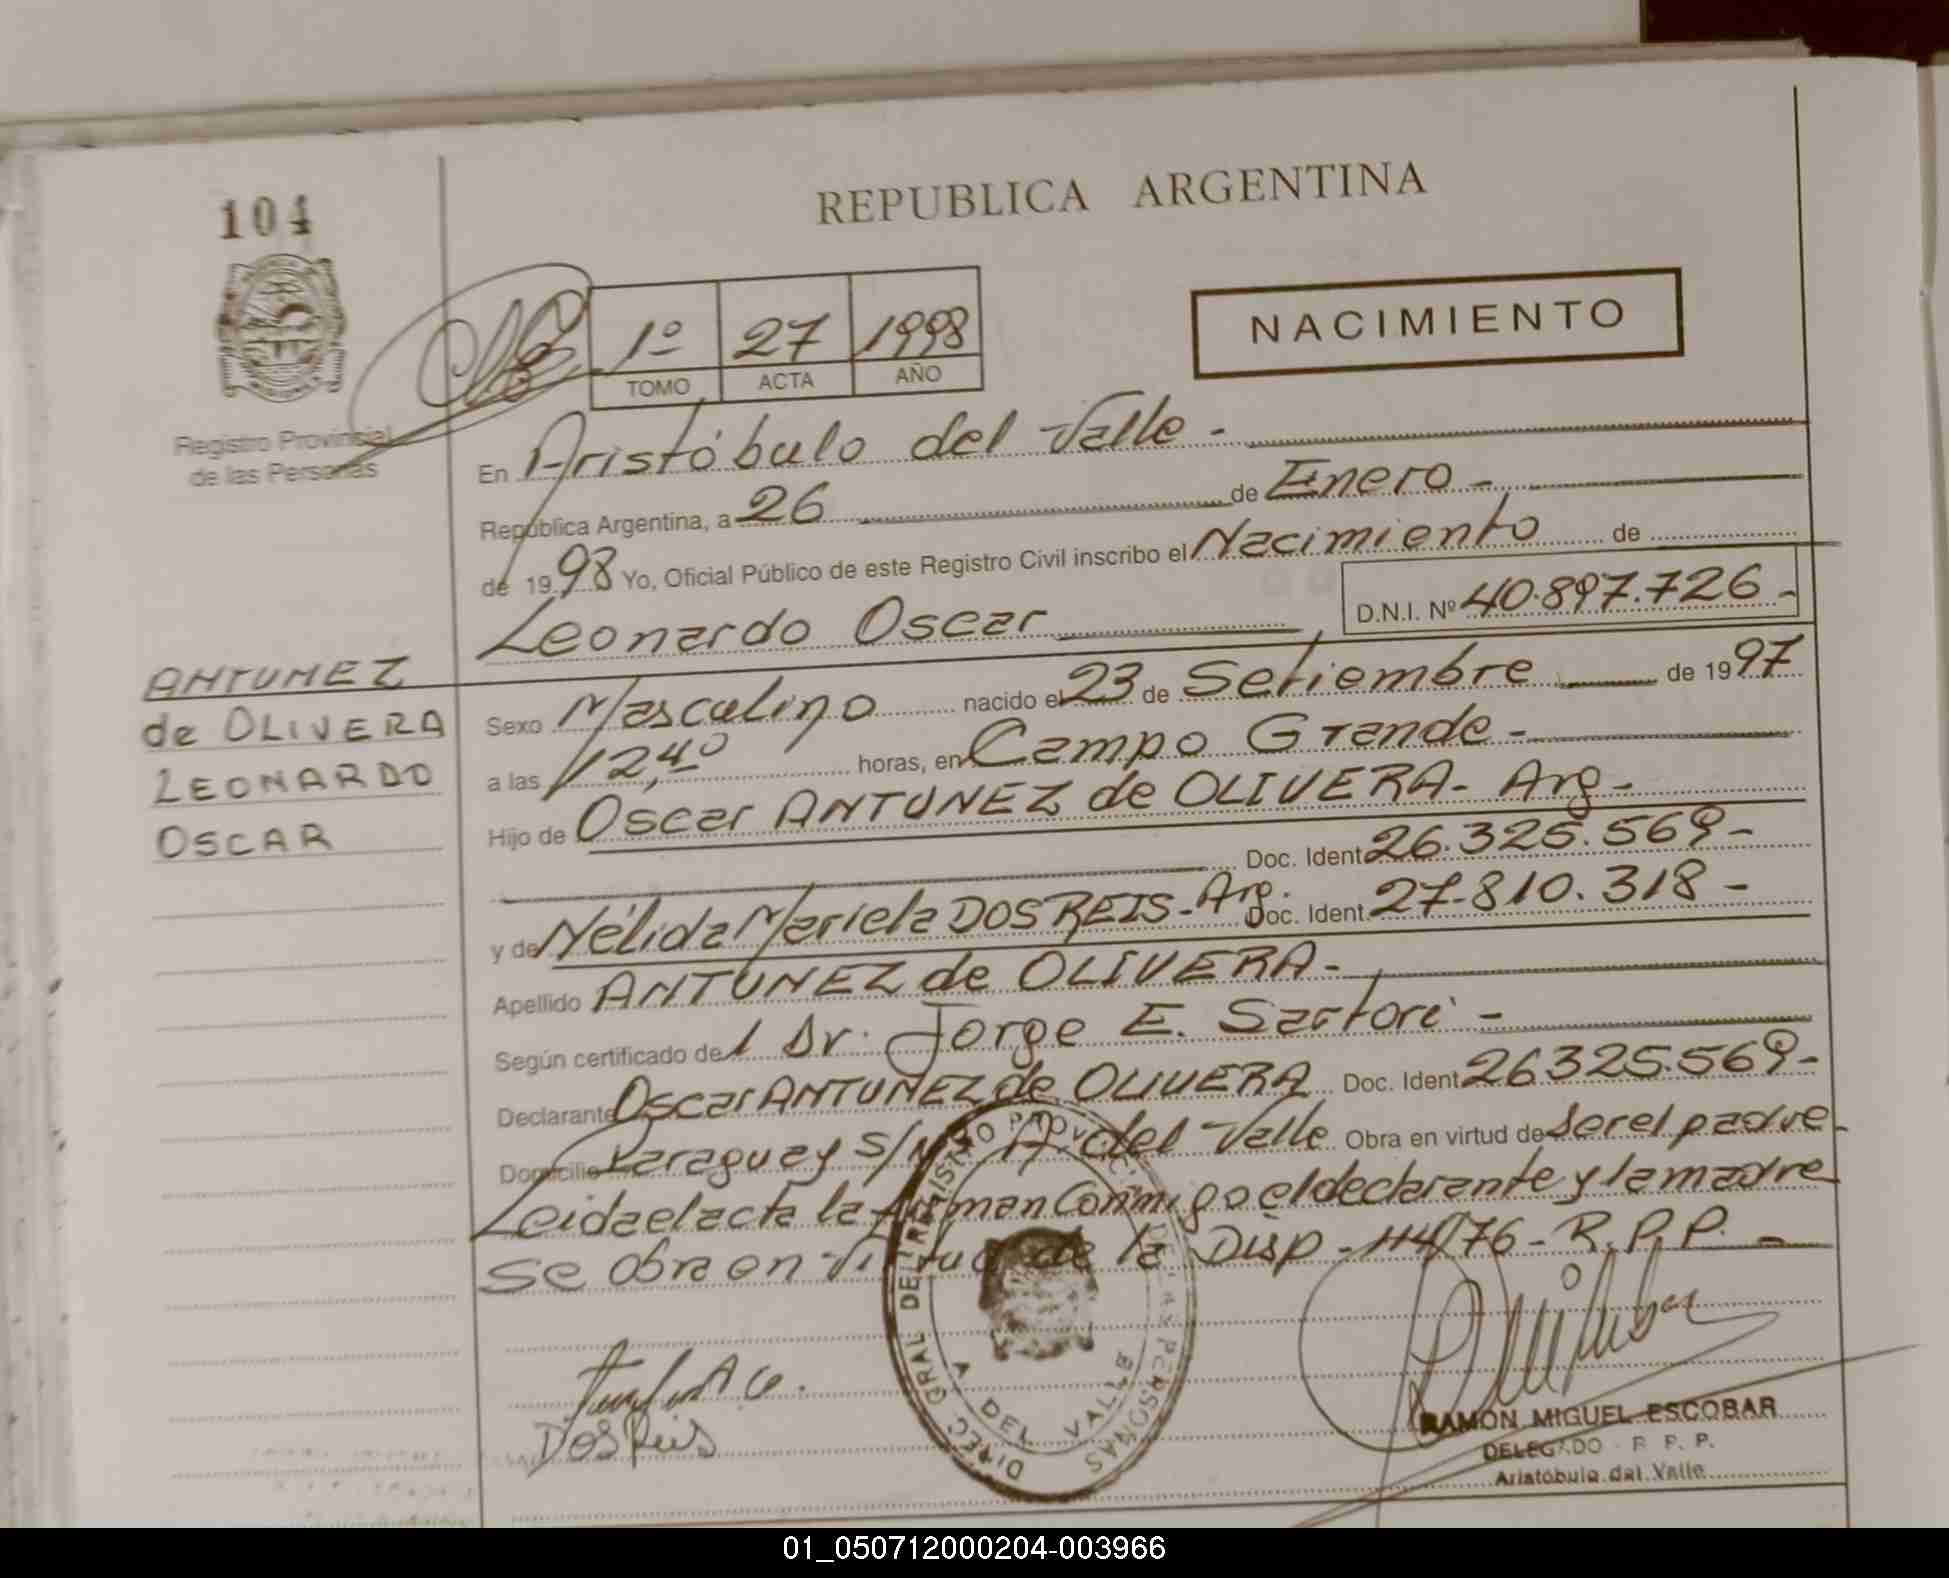 104
REPUBLICA ARGENTINA
1º 27 1998
TOMO ACTA AÑO
NACIMIENTO
Registro Provincial
de las Personas
En Aristóbulo del Valle -
República Argentina, a 26 de Enero -
de 1998 Yo, Oficial Público de este Registro Civil inscribo el Nacimiento de
Leonardo Oscar D.N.I. Nº 40.897.726 -
ANTUNEZ
de OLIVERA
LEONARDO
OSCAR
Sexo Masculino nacido el 23 de Setiembre de 1997
a las 12,40 horas, en Campo Grande -
Hijo de Oscar ANTUNEZ de OLIVERA - Arg -
Doc. Ident 26.325.569 -
y de Nélida Mariela DOS REIS - Arg. Doc. Ident. 27.810.318 -
Apellido ANTUNEZ de OLIVERA -
Según certificado del Dr. Jorge E. Sartori -
Declarante Oscar ANTUNEZ de OLIVERA Doc. Ident 26325.569 -
Domicilio Paraguay S/Nº A. del Valle Obra en virtud de ser el padre -
Leida el acta la firman Conmigo el declarante y la madre
Se obra en virtud de la Disp - 114/76 - R.P.P. -
DIREC GRAL DEL REGISTRO PROVINC. DE LAS PERSONAS
A DEL VALLE
Dos Reis
RAMON MIGUEL ESCOBAR
DELEGADO - R. P. P.
Aristóbulo del Valle
01_050712000204-003966